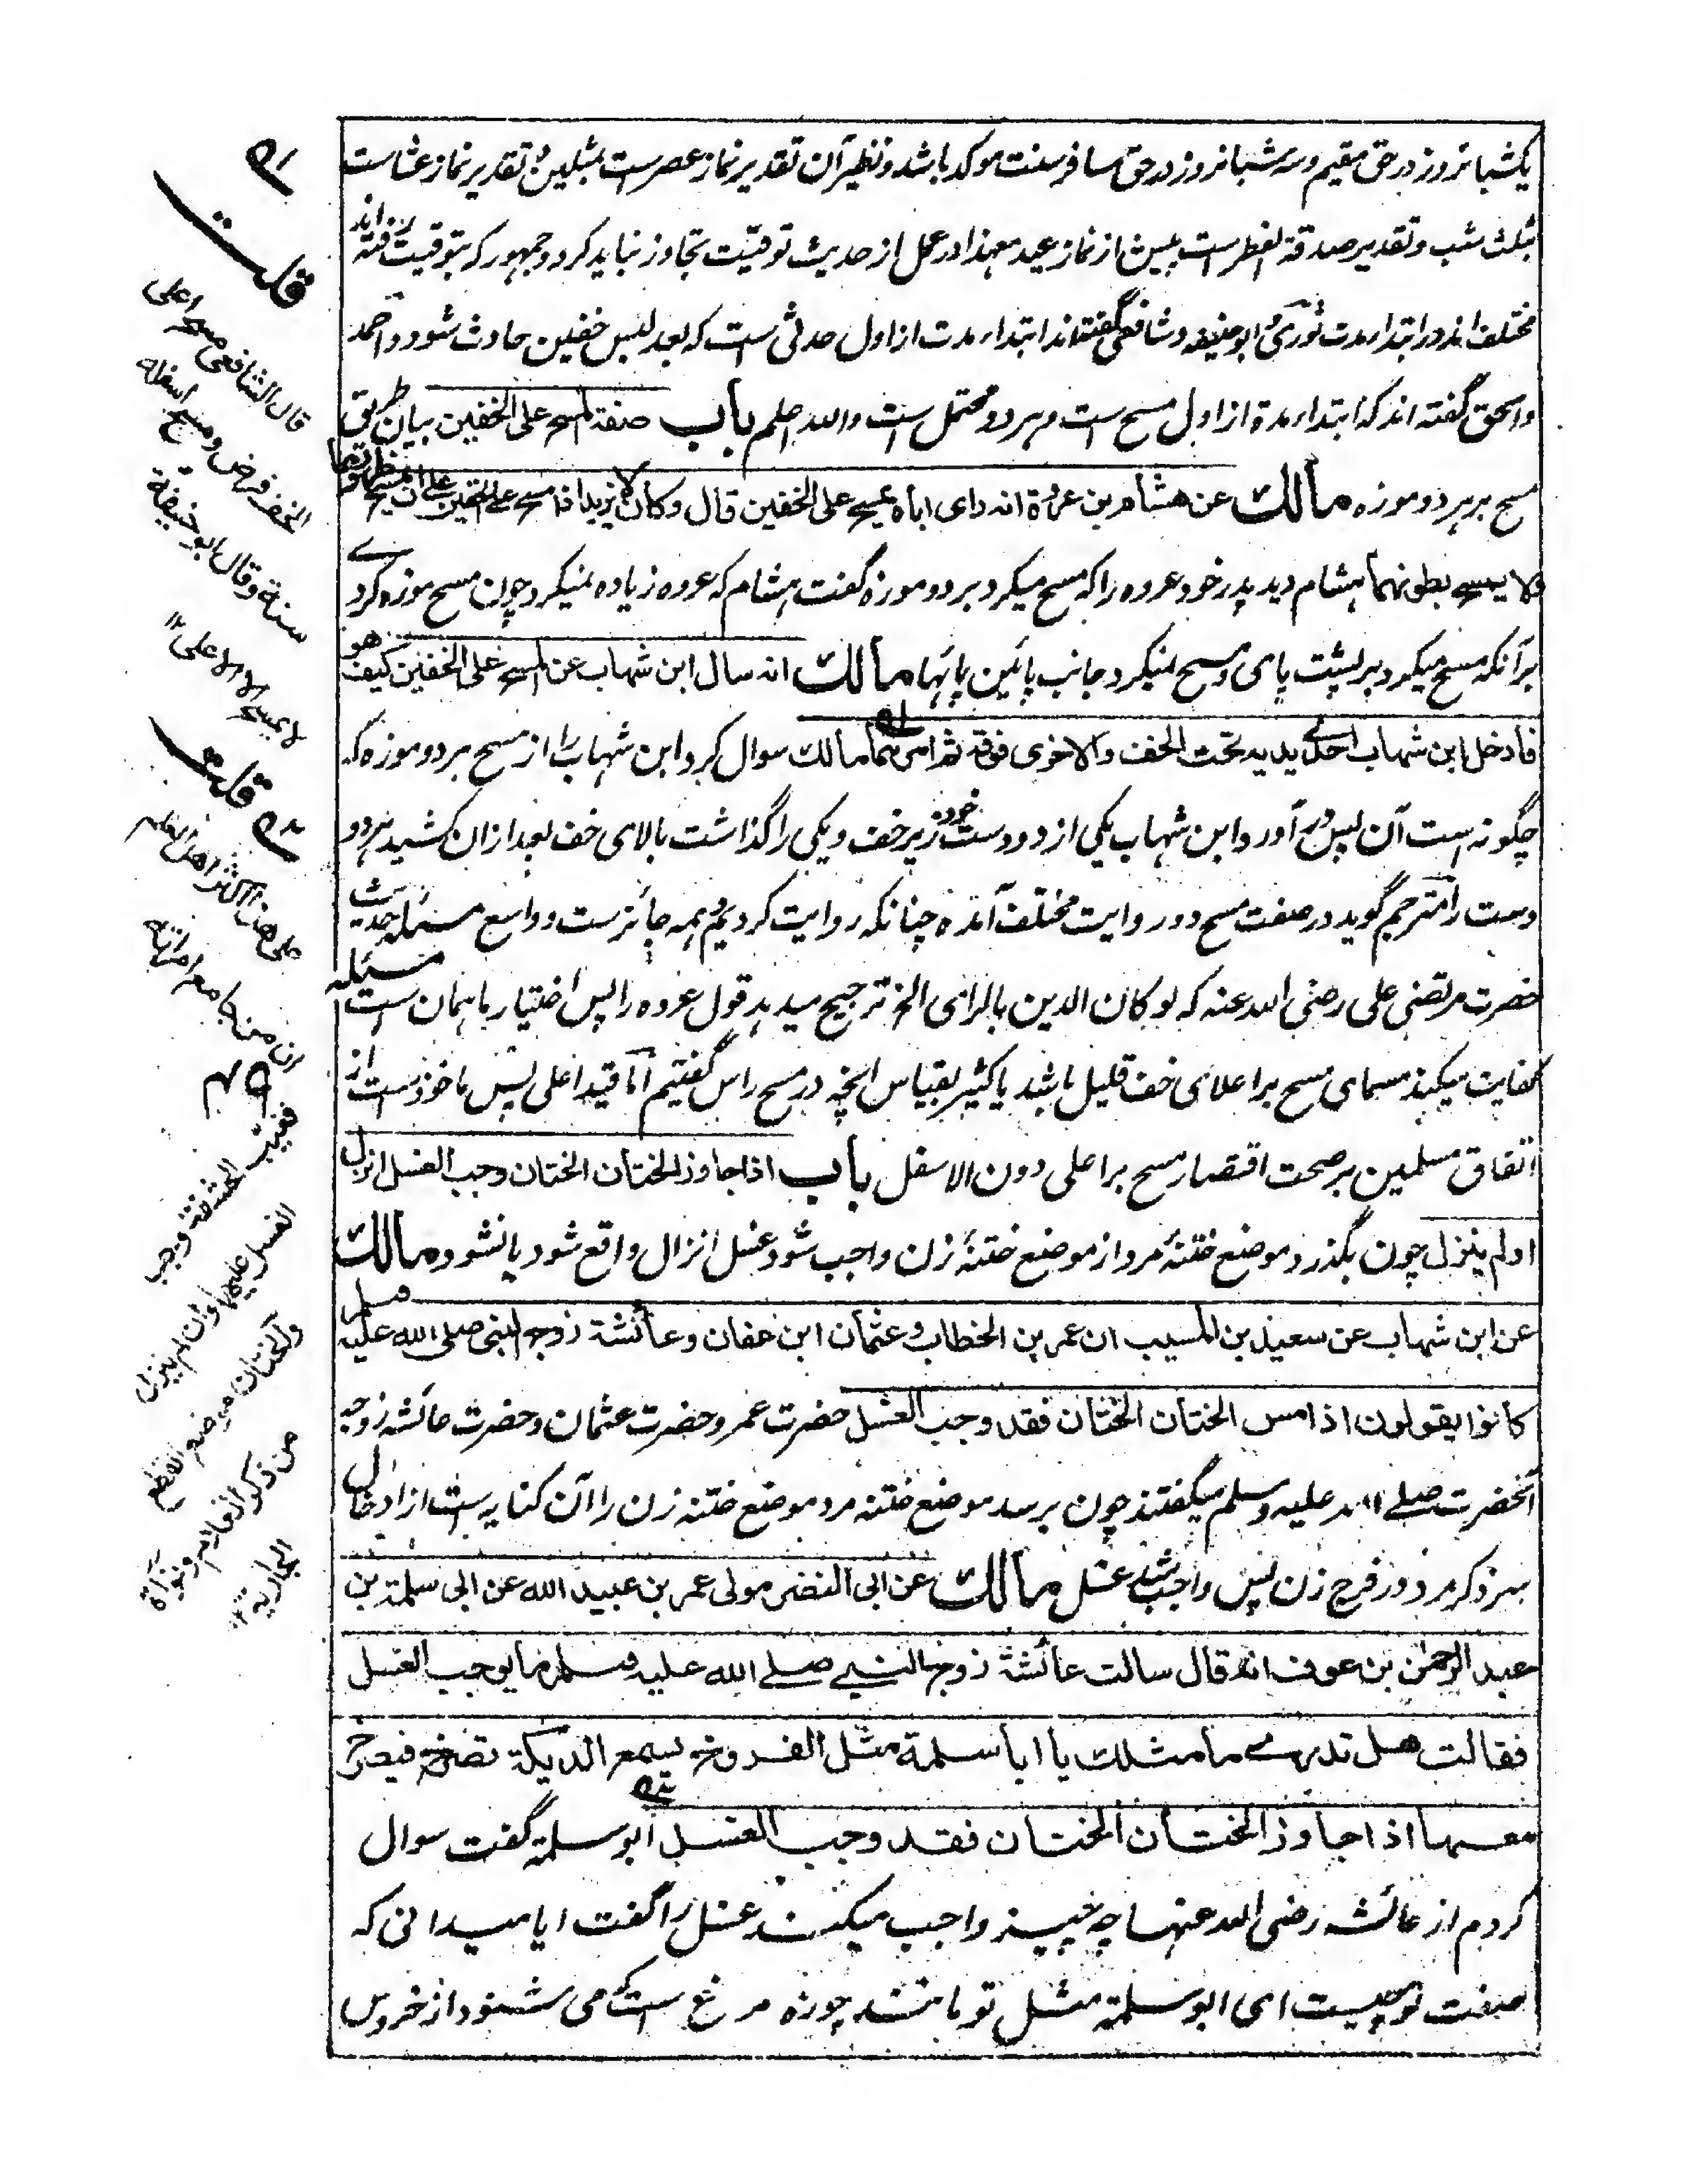 یکشبانروز در حق مقیم و سه شبانروز در حق مسافر سنت موکد باشد و نظیر آن تقدیر نماز عصر است بمثلین و تقدیر نماز عشاست
بثلث شب و تقدیر صدقة الفطر است پیش از نماز عید معهذا در عمل از حدیث توقیت تجاوز نباید کرد و جمهور که بتوقیت رفته اند
مختلف اند در ابتداء مدت ثوری و ابو حنیفه و شافعی گفته‌اند ابتداء مدت از اول حدثی است که بعد لبس خفین حادث شود و احمد
و اسحق گفته اند که ابتداء مدة از اول مسح است و هر دو محتمل است والله اعلم باب صفة المسح علی الخفین بیان طریق
مسح بر هر دو موزه مالك عن هشام بن عروة انه رای اباه یمسح علی الخفین قال وکان لا یزید اذا مسح علی الخفین علی ان یمسح ظهورهما
ولا یمسح بطونهما هشام دید پدر خود عروه را که مسح میکرد بر دو موزه گفت هشام که عروه زیاده نمیکرد چون مسح موزه کردے
بر آنکه مسح میکرد بر پشت پای و مسح نمیکرد جانب پائین پایها مالك انه سال ابن شهاب عن المسح علی الخفین کیف هو
فادخل ابن شهاب احدی یدیه تحت الخف والاخری فوقه ثم امرهما مالك سوال کرد ابن شهاب را از مسح بر دو موزه که
چگونه است آن پس در آورد ابن شهاب یکی از دو دست خود زیر خف و یکی را گذاشت بالای خف بعد ازان کشید هر دو
دست را مترجم گوید در صفت مسح دو روایت مختلف آمده چنانکه روایت کردیم و همه جائزست و واسع مسئله حدیث
حضرت مرتضی علی رضی الله عنه که لو کان الدین بالرای الخ ترجیح میدهد قول عروه را پس اختیار ما همان است مسئله
کفایت میکند مسمای مسح بر اعلای خف قلیل باشد یا کثیر بقیاس آنچه در مسح راس گفتیم اما قید اعلی پس ماخوذست از
اتفاق مسلمین بر صحت اقتصار مسح بر اعلی دون الاسفل باب اذا جاوز الختان الختان وجب الغسل انزل
اولم ینزل چون بگذرد موضع ختنۀ مرد از موضع ختنۀ زن واجب شود غسل انزال واقع شود یا نشود مالك
عن ابن شهاب عن سعید بن المسیب ان عمر بن الخطاب و عثمان ابن عفان وعائشة زوج النبی صلی الله علیه وسلم
کانوا یقولون اذا مس الختان الختان فقد وجب الغسل حضرت عمر و حضرت عثمان و حضرت عائشه زوجه
آنحضرت صلے الله علیه وسلم میگفتند چون برسد موضع ختنه مرد موضع ختنه زن را آن کنایه است از ادخال
سر ذکر مرد در فرج زن پس واجب شد غسل مالك عن ابی النضر مولی عمر بن عبید الله عن ابی سلمة بن
عبد الرحمن بن عوف انه قال سالت عائشة زوج النبے صلے الله علیه وسلم ما یوجب الغسل
فقالت هل تدرے ما مثلك یا ابا سلمة مثل الفروخ یسمع الدیکة تصرخ فیصرخ
معها اذا جاوز الختان الختان فقد وجب الغسل ابو سلمة گفت سوال
کردم از عائشه رضی الله عنها چه چیز واجب میکند غسل را گفت ایا میدانی که
صفت تو چیست ای ابو سلمة مثل تو مانند چوزه مرغ ست که می شنود از خروس
قلت
قال الشافعی مسح اعلی
الخف فرض ومسح اسفله
سنة وقال ابو حنیفة
لا یمسح الا الاعلی
قلت
علی هذا اکثر اهل العلم
ان من جامع امراته
فغیب الحشفة وجب
الغسل علیهما وان لم ینزل
والختان موضع القطع
من ذکر الغلام ونواة
الجاریة